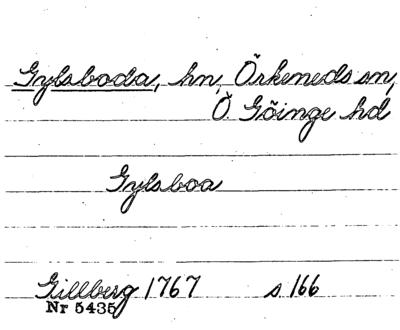 Gylsboda, hn, Örkeneds sn,
Ö. Göinge hd
Gylsboa
Gillberg 1767 s 166
Nr 5435